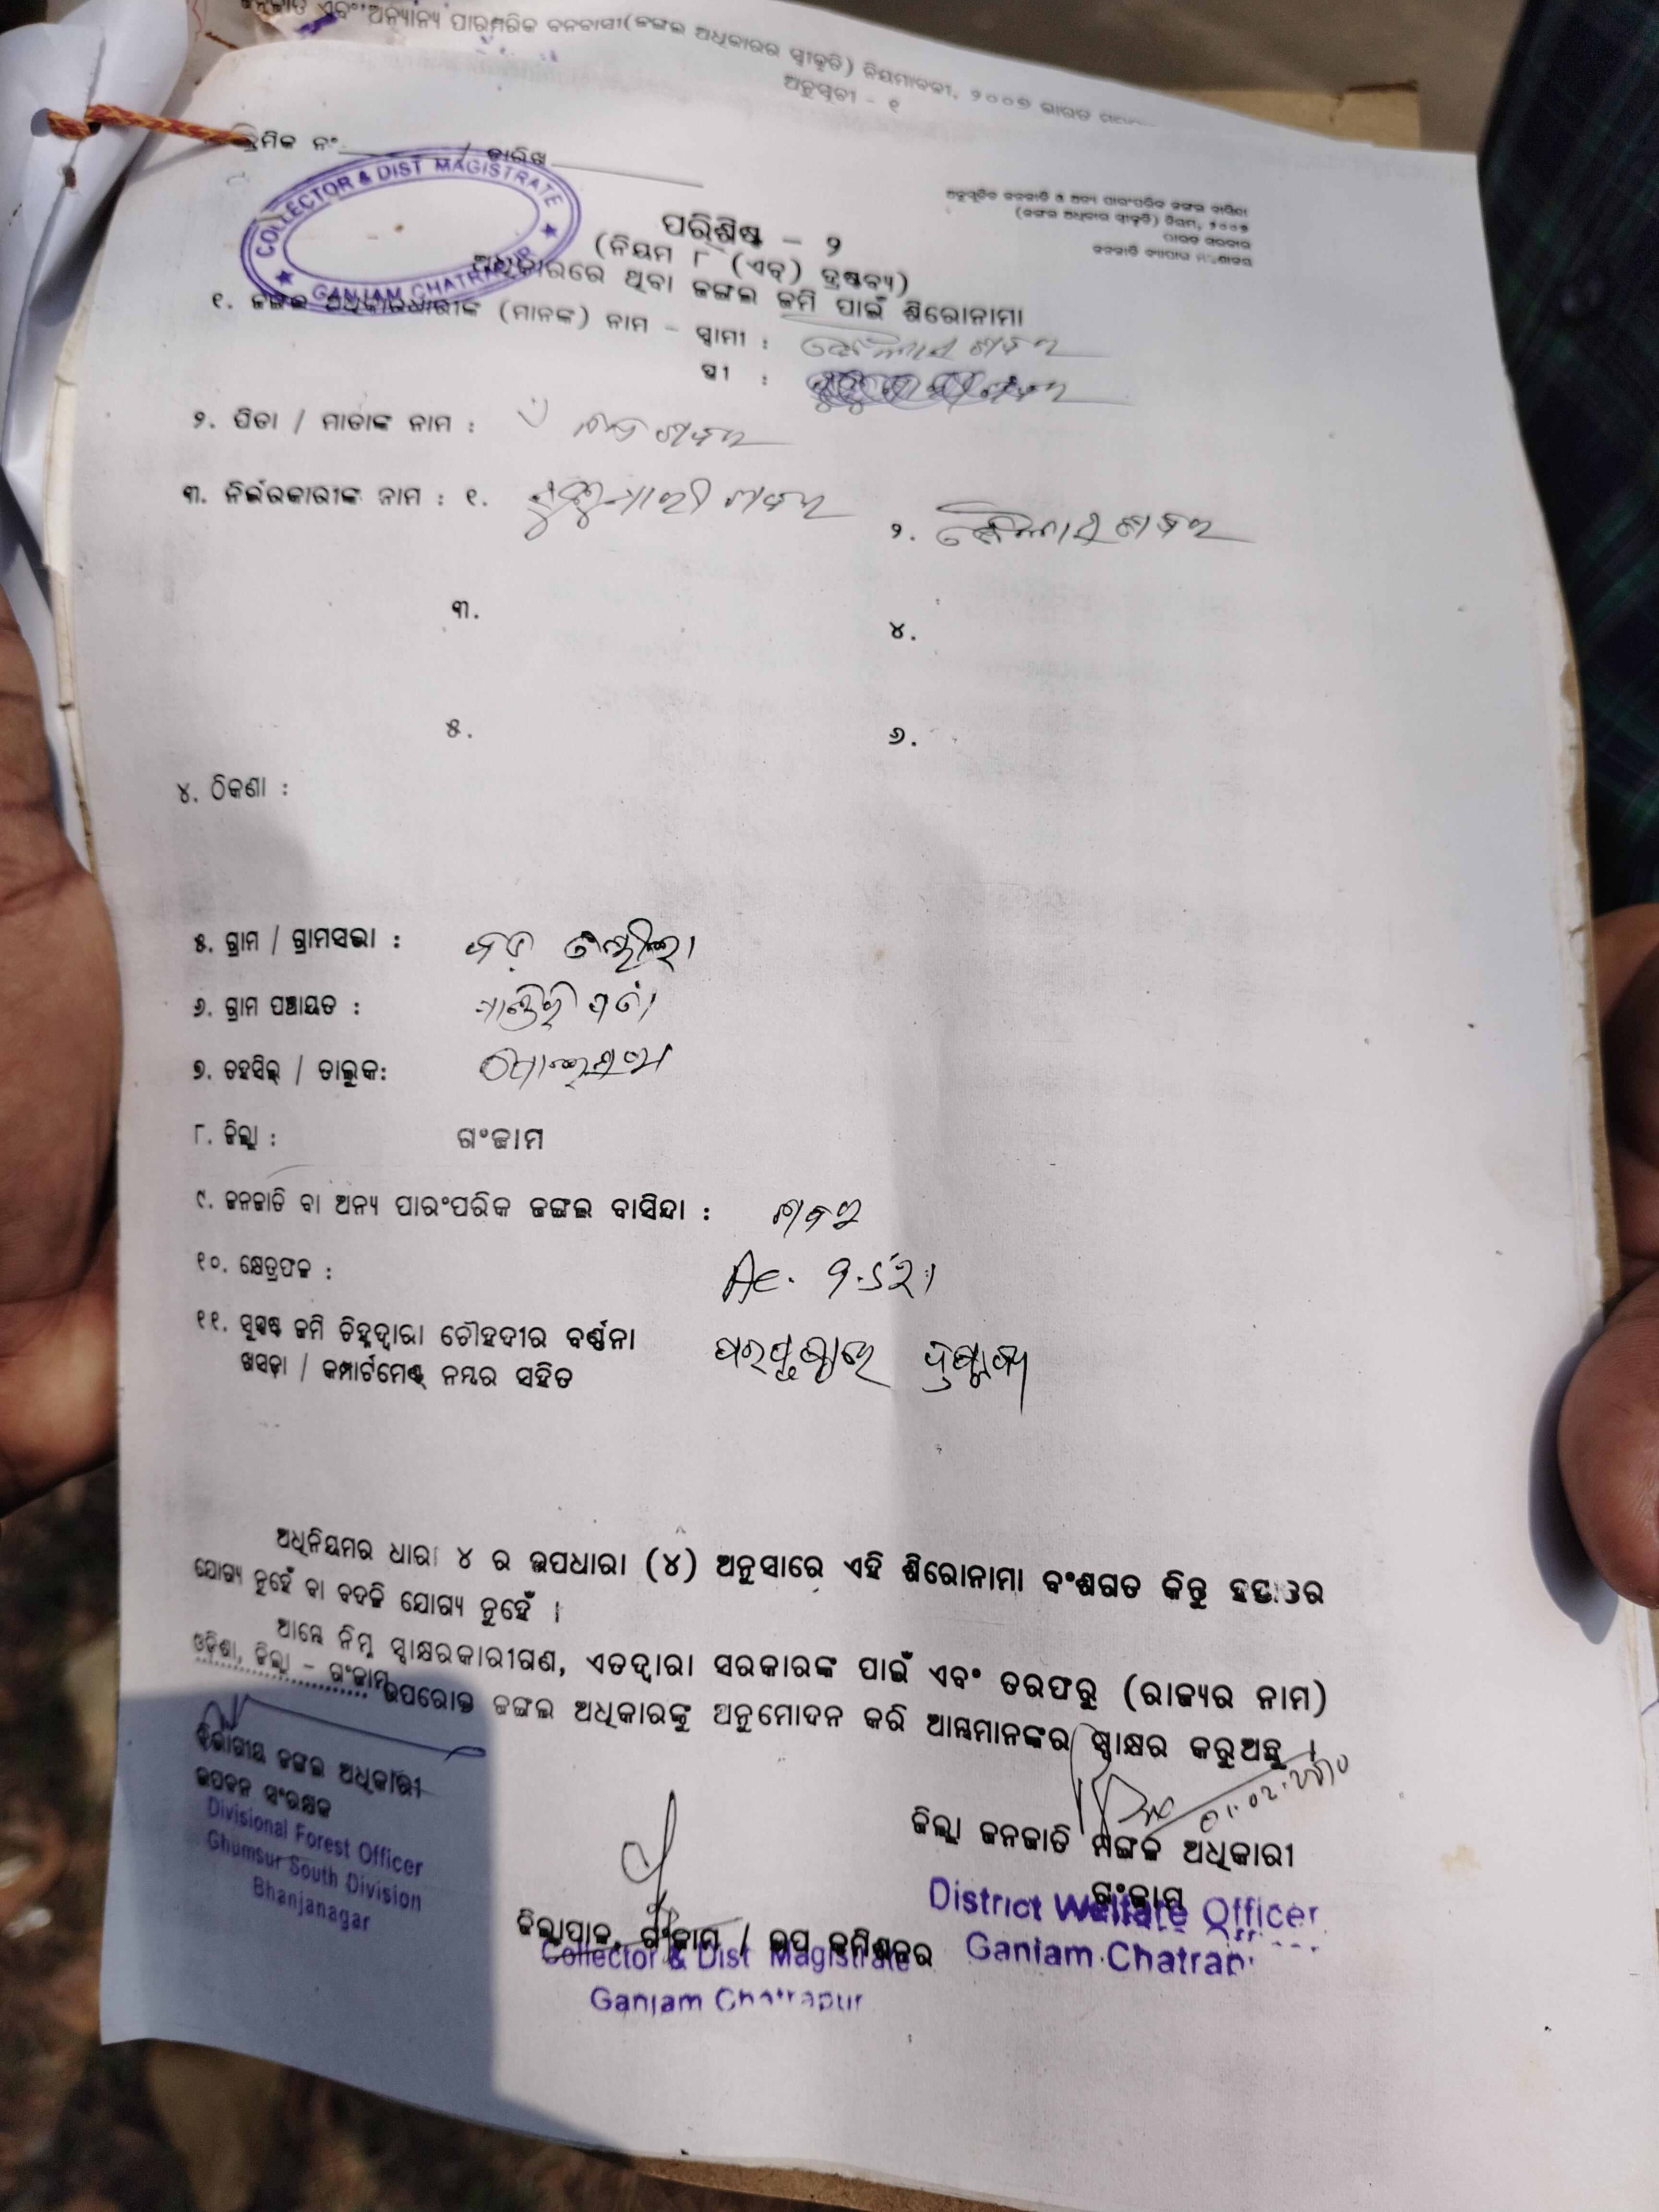 ଏବଂ ଅନ୍ୟାନ୍ୟ ପାରମ୍ପରିକ ବନବାସୀ(ଜଙ୍ଗଲ ଅଧିକାରର ସ୍ୱୀକୃତି) ନିୟମାବଳୀ, ୨୦୦୭ ଭାରତ
ଅନୁସୂଚୀ - ୧
କ୍ରମିକ ନଂ / ତାରିଖ
COLLECTOR & DIST MAGISTRATE
GANJAM CHATRAPUR
ଅନୁସୂଚିତ ଜନଜାତି ଓ ଅନ୍ୟ ପାରଂପରିକ ଜଙ୍ଗଲ ବାସିନ୍ଦା
(ଜଙ୍ଗଲ ଅଧିକାର ସ୍ୱୀକୃତି) ନିୟମ, ୨୦୦୭
ଭାରତ ସରକାର
ଜନଜାତି ବ୍ୟାପାର ମନ୍ତ୍ରଣାଳୟ
ପରିଶିଷ୍ଟ - ୨
(ନିୟମ ୮ (ଏବ୍) ଦ୍ରଷ୍ଟବ୍ୟ)
ଅଧିକାରରେ ଥିବା ଜଙ୍ଗଲ ଜମି ପାଇଁ ଶିରୋନାମା
୧. ଜଙ୍ଗଲ ଅଧିକାରଧାରୀଙ୍କ (ମାନଙ୍କ) ନାମ - ସ୍ୱାମୀ : ଶବର
ସ୍ତ୍ରୀ :
୨. ପିତା / ମାତାଙ୍କ ନାମ : ଶବର
୩. ନିର୍ଭରକାରୀଙ୍କ ନାମ : ୧. ଶବର
୨. ଶବର
୩.
୪.
୫.
୬.
୪. ଠିକଣା :
୫. ଗ୍ରାମ / ଗ୍ରାମସଭା : ବଡ଼
୬. ଗ୍ରାମ ପଞ୍ଚାୟତ :
୭. ତହସିଲ୍ / ତାଲୁକ:
୮. ଜିଲ୍ଲା : ଗଂଜାମ
୯. ଜନଜାତି ବା ଅନ୍ୟ ପାରଂପରିକ ଜଙ୍ଗଲ ବାସିନ୍ଦା : ଶବର
୧୦. କ୍ଷେତ୍ରଫଳ : Ac.
୧୧. ସୁସ୍ପଷ୍ଟ ଜମି ଚିହ୍ନଦ୍ୱାରା ଚୌହଦୀର ବର୍ଣ୍ଣନା
ଖସଡ଼ା / କମ୍ପାର୍ଟମେଣ୍ଟ୍ ନମ୍ବର ସହିତ ପରପୃଷ୍ଠାରେ ଦ୍ରଷ୍ଟବ୍ୟ
ଅଧିନିୟମର ଧାରା ୪ ର ଉପଧାରା (୪) ଅନୁସାରେ ଏହି ଶିରୋନାମା ବଂଶଗତ କିନ୍ତୁ ହସ୍ତାନ୍ତର
ଯୋଗ୍ୟ ନୁହେଁ ବା ବଦଳି ଯୋଗ୍ୟ ନୁହେଁ ।
ଆମ୍ଭେ ନିମ୍ନ ସ୍ୱାକ୍ଷରକାରୀଗଣ, ଏତଦ୍ୱାରା ସରକାରଙ୍କ ପାଇଁ ଏବଂ ତରଫରୁ (ରାଜ୍ୟର ନାମ)
ଓଡ଼ିଶା, ଜିଲ୍ଲା - ଗଂଜାମ ଉପରୋକ୍ତ ଜଙ୍ଗଲ ଅଧିକାରଙ୍କୁ ଅନୁମୋଦନ କରି ଆମ୍ଭମାନଙ୍କର ସ୍ୱାକ୍ଷର କରୁଅଛୁ ।
ବିଭାଗୀୟ ଜଙ୍ଗଲ ଅଧିକାରୀ
ଉପବନ ସଂରକ୍ଷକ
Divisional Forest Officer
Ghumsur South Division
Bhanjanagar
ଜିଲ୍ଲାପାଳ, ଗଂଜାମ / ଉପ କମିଶନର
Collector & Dist Magistrate
Ganjam Chatrapur
ଜିଲ୍ଲା ଜନଜାତି ମଙ୍ଗଳ ଅଧିକାରୀ
ଗଂଜାମ
District Welfare Officer
Ganjam Chatrap